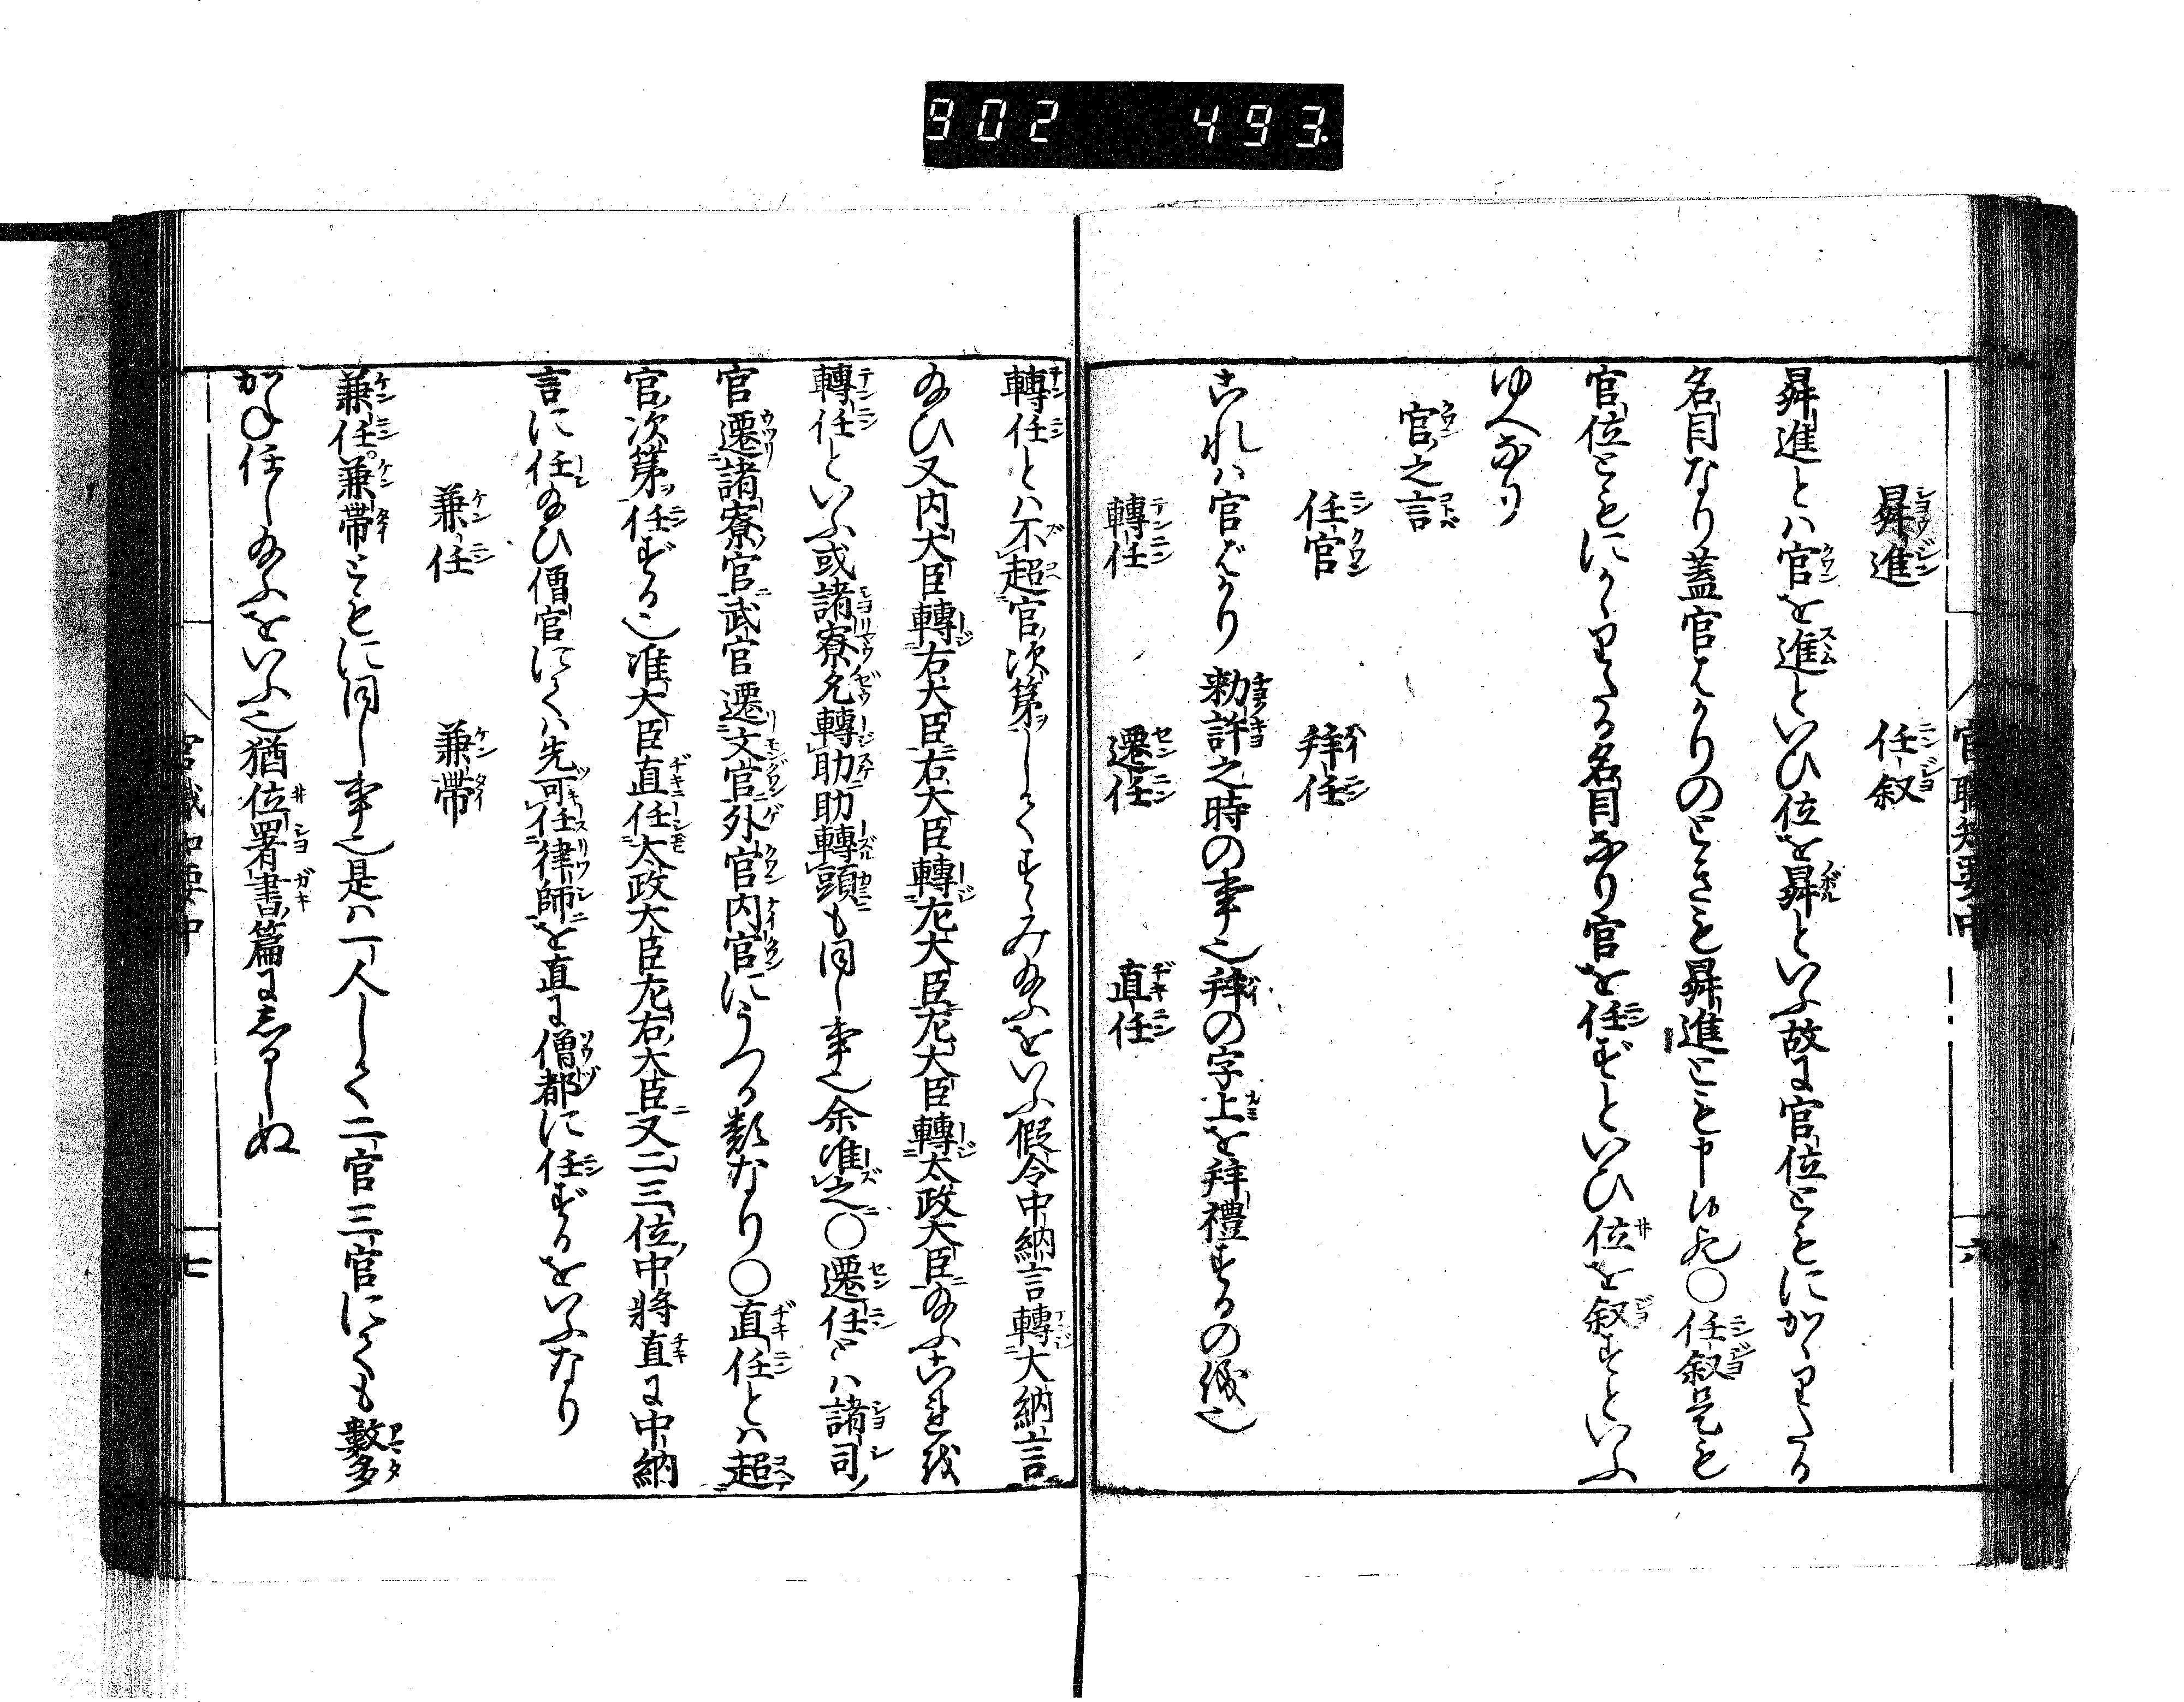 902 493
官職知要中 六
昇進 任叙
昇進とハ官を進といひ位を昇といふ故に官位ともにかゝりたる
名目なり蓋官はかりのときも昇進とも申候也〇任叙是も
官位ともにかゝりたる名目なり官を任ずといひ位を叙すといふ
ゆへなり
官之言
任官 拜任
これハ官ばかり 勅許之時の事也拜の字上を拜禮するの儀也
轉任 遷任 直任
轉任とハ不超官次第してすゝみ給ふをいふ假令中納言轉大納言
給ひ又内大臣轉右大臣右大臣轉左大臣左大臣轉太政大臣給ふこれを
轉任といふ或諸寮允轉助助轉頭も同し事也余准之〇遷任とハ諸司
官遷諸寮官武官遷文官外官内官にうつる類なり〇直任とハ超
官次第任ずる也准大臣直任太政大臣左右大臣又二三位中將直に中納
言に任給ひ僧官にてハ先可任律師を直に僧都に任ずるをいふなり
兼任 兼帶
兼任。兼帶ともに同し事也是ハ一人して二官三官にても數多
かね任し給ふをいふ也猶位署書篇にしるしぬ
官職知要中 七